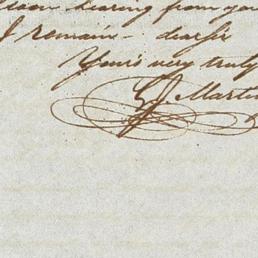 hearing from you
I remain - dear Sir
Yours very truly
J. Martin